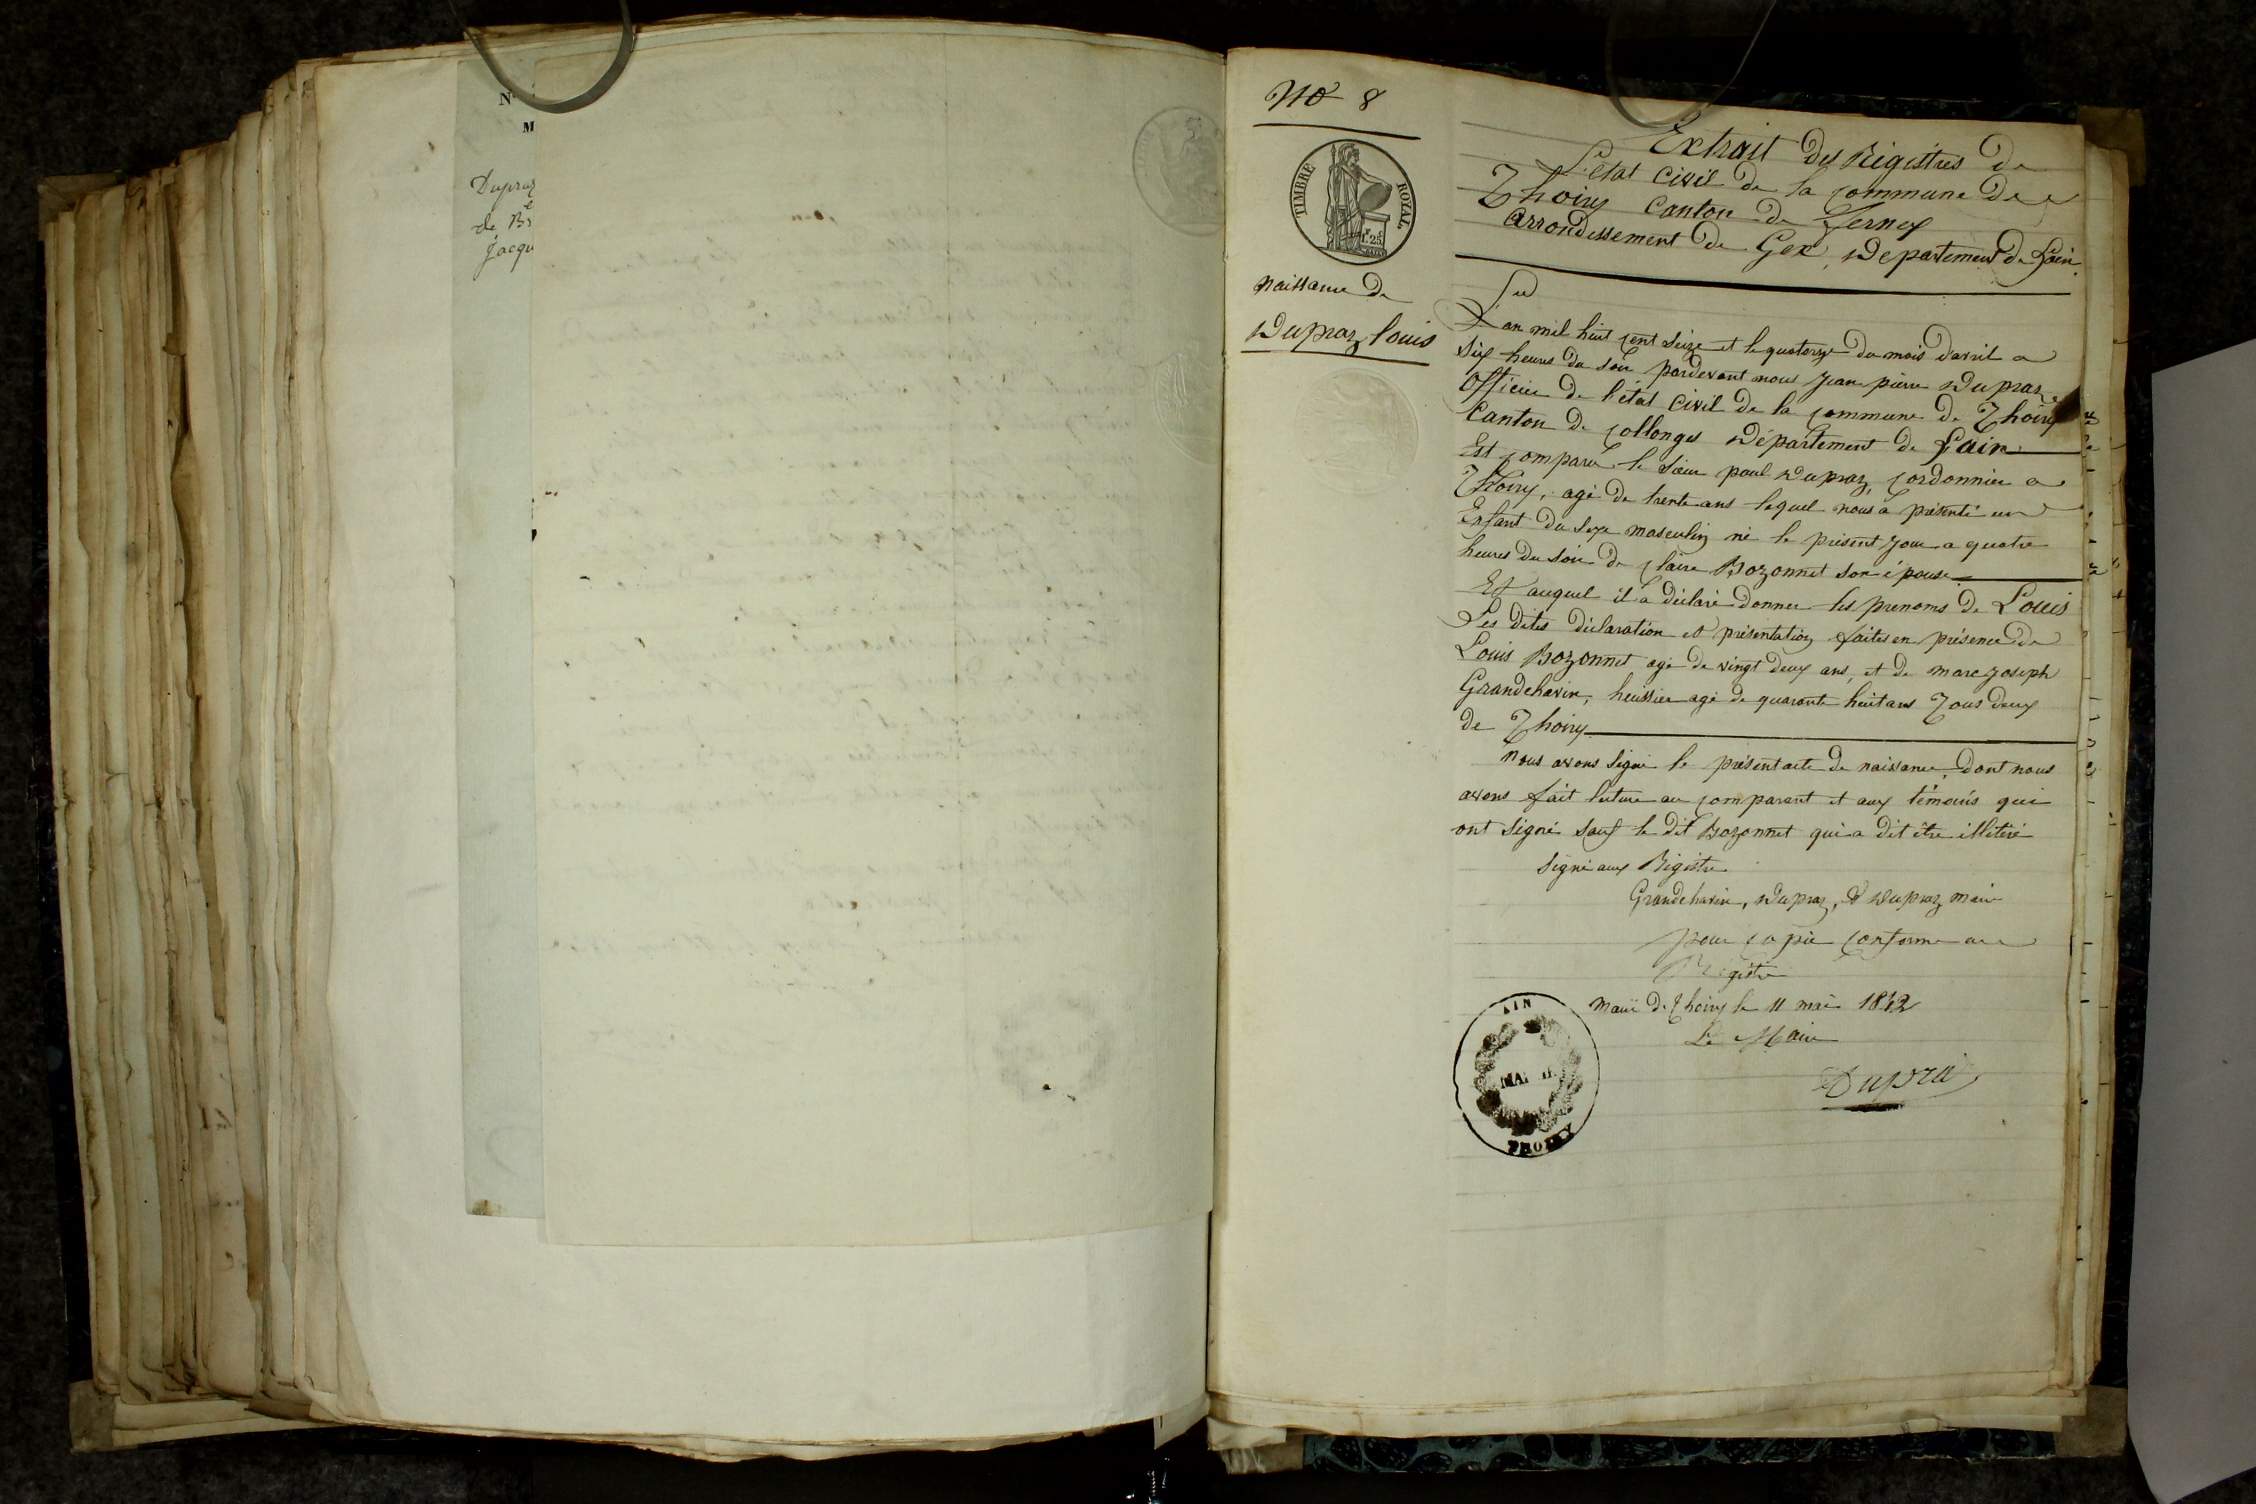 N
M
Dupraz
de Be
Jacqu
No 8
TIMBRE ROYAL
1.25
naissance de
Dupraz louis
Extrait des Régistres de
L'état civil de la commune de
Thoiry canton de Ferney
arrondissement de Gex, Departement de Lain.
L'an mil huit cent seize et le quatorze du mois d'avril a
six heures du soir pardevant nous Jean pierre Dupraz
Officier de l'état civil de la commune de Thoiry
Canton de Collonges Département de Lain
Est comparu le sieur paul Dupraz, cordonnier a
Thoiry, agé de trente ans lequel nous a présenté un
Enfant du sexe masculin né le présent jour a quatre
heures du soir de Claire Bozonnet son épouse
Et auquel il a déclaré donner les prenoms de Louis
Les dites déclaration et présentation faites en présence de
Louis Bozonnet agé de vingt deux ans, et de marc joseph
Grandchavin, heuissier agé de quarante huit ans Tous deux
de Thoiry
nous avons signé le présent acte de naissance, dont nous
avons fait lecture au comparant et aux témoins qui
ont signé sauf le dit Bozonnet qui a dit être illitéré
signé aux Régistre
Grandchavin, Dupraz, & Dupraz maire
pour copie conforme au
Régistre
Mairie de Thoiry le 11 mai 1842
Le Maire
Dupra
AIN
MAI
THOIRY